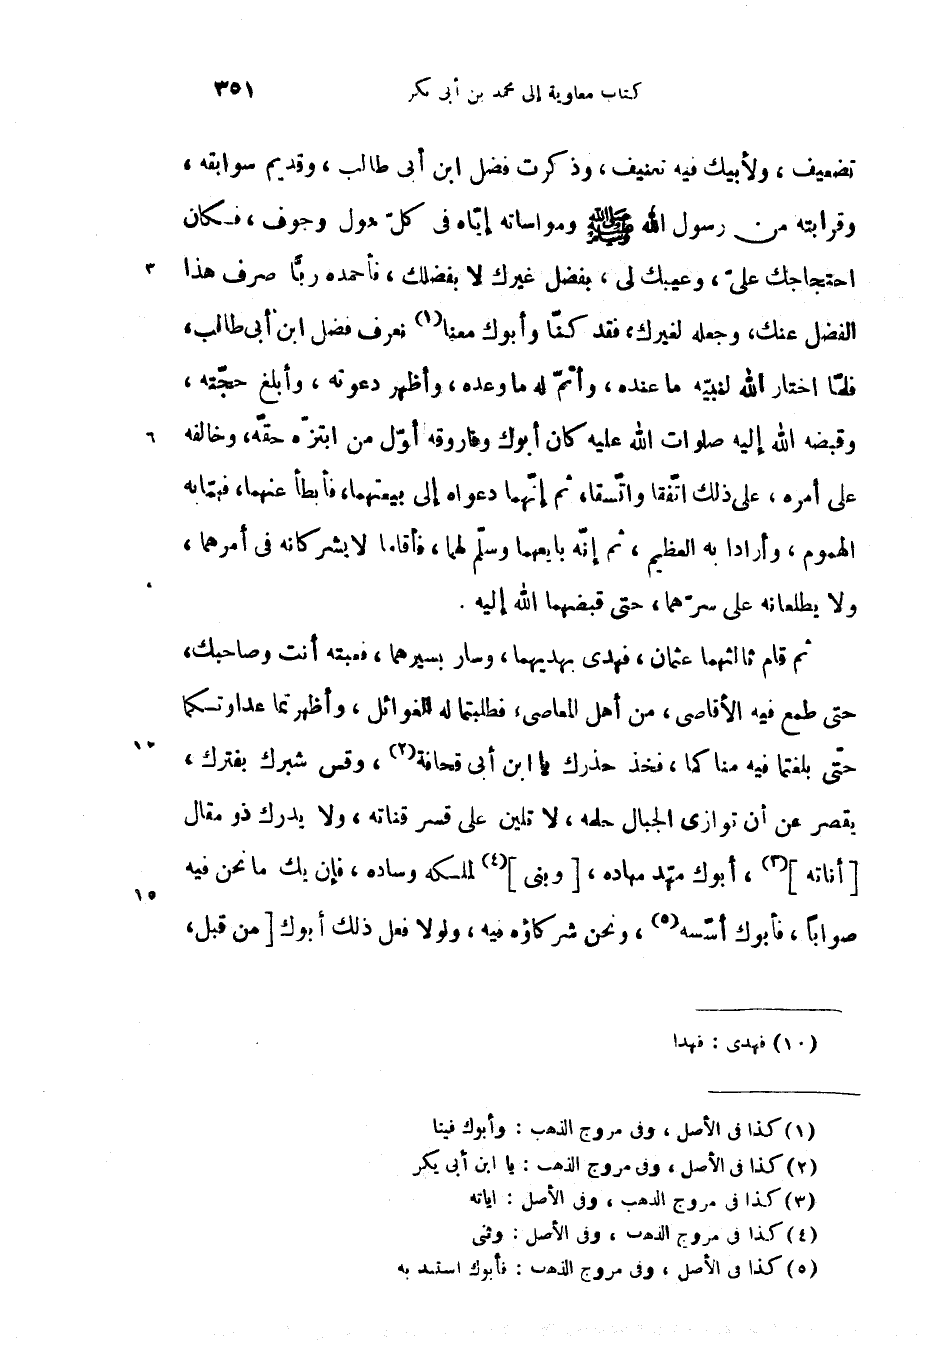 كتاب معاوية إلى محمد بن أبى بكر ٣٥١
تضعيف ، ولأبيك فيه تعنيف ، وذكرت فضل ابن أبى طالب ، وقديم سوابقه ،
وقرابته من رسول الله ﷺ ومواساته إيّاه فى كلّ هول وخوف ، فكان
احتجاجك علىّ ، وعيبك لى ، بفضل غيرك لا بفضلك ، فأحمده ربًّا صرف هذا ٣
الفضل عنك، وجعله لغيرك، فقد كنّا وأبوك معنا(١) نعرف فضل ابن أبى طالب،
فلمّا اختار الله لنبيّه ما عنده ، وأتمّ له ما وعده ، وأظهر دعوته ، وأبلغ حجّته ،
وقبضه الله إليه صلوات الله عليه كان أبوك وفاروقه أوّل من ابتزّه حقّه، وخالفه ٦
على أمره ، على ذلك اتّفقا واتّسقا، ثم إنّهما دعواه إلى بيعتهما، فأبطأ عنهما، فهمّا به
الهموم ، وأرادا به العظيم ، ثم إنّه بايعهما وسلّم لهما ، فأقاما لا يشركانه فى أمرهما ،
ولا يطلعانه على سرّهما ، حتى قبضهما الله إليه .
ثم قام ثالثهما عثمان ، فهدى بهديهما ، وسار بسيرهما ، فعبته أنت وصاحبك،
حتى طمع فيه الأقاصى ، من أهل المعاصى، فطلبتما له الغوائل ، وأظهرتما عداوتكما
حتّى بلغتما فيه مناكما ، فخذ حذرك يا ابن أبى قحافة(٢) ، وقس شبرك بفترك ، ١٢
يقصر عن أن توازى الجبال حلمه ، لا تلين على قسر قناته ، ولا يدرك ذو مقال
[ أناته ](٣) ، أبوك مهّد مهاده ، [ وبنى ](٤) لملكه وساده ، فإن يك ما نحن فيه
صواباً ، فأبوك أسّسه(٥) ، ونحن شركاؤه فيه ، ولولا فعل ذلك أبوك [ من قبل، ١٥
(١٠) فهدى : فهدا
(١) كذا فى الأصل ، وفى مروج الذهب : وأبوك فينا
(٢) كذا فى الأصل ، وفى مروج الذهب : يا ابن أبى بكر
(٣) كذا فى مروج الذهب ، وفى الأصل : اياته
(٤) كذا فى مروج الذهب ، وفى الأصل : وثنى
(٥) كذا فى الأصل ، وفى مروج الذهب : فأبوك استبد به